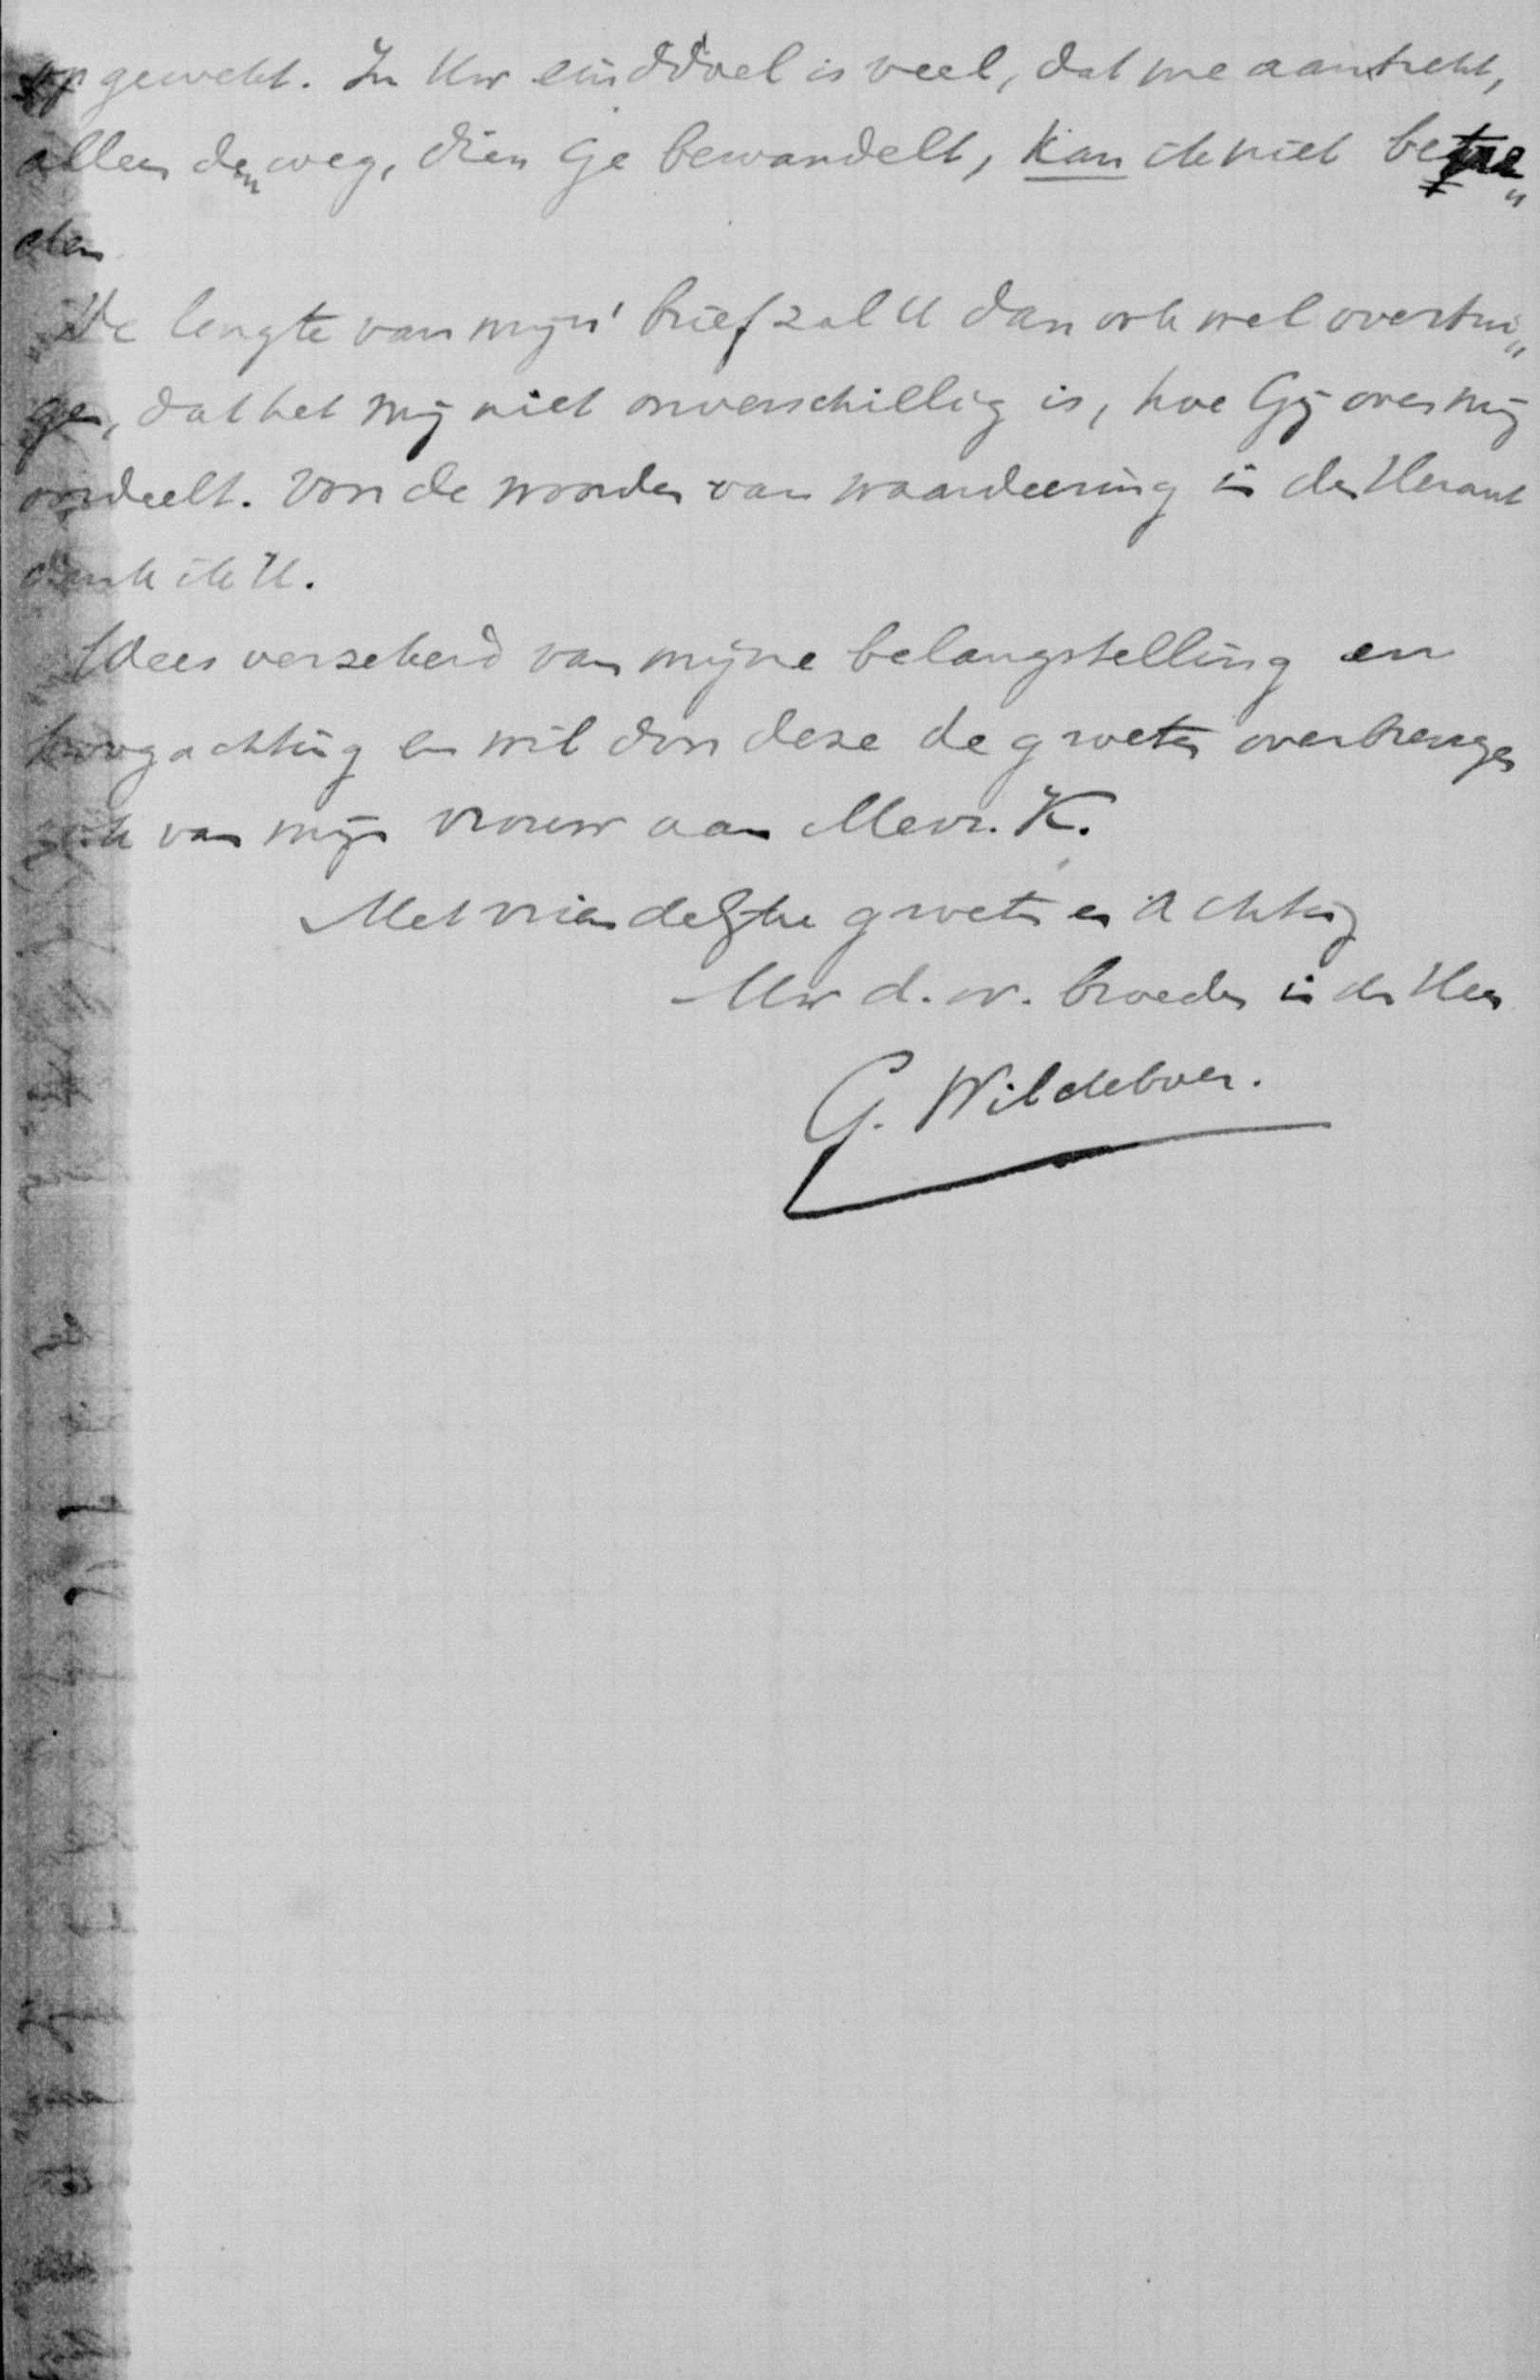 opgewekt. In Uw einddoel is veel, dat me aantrekt,
alleen den weg, dien Ge bewandelt, kan ik niet betre„
den
De lengte van mijn' brief zal U dan ook wel overtui„
„gen, dat het mij niet onverschillig is, hoe Gij over mij
oordeelt. Voor de woorden van waardeering in de Heraut
dank ik U.
Wees verzekerd van mijne belangstelling en
hoogachting en wil door deze de groeten overbrengen
ook van mijn vrouw aan Mevr. K.
Met vriendelijke groeten en achting
Uw d. w. broeder in den Heer
G. Wildeboer.